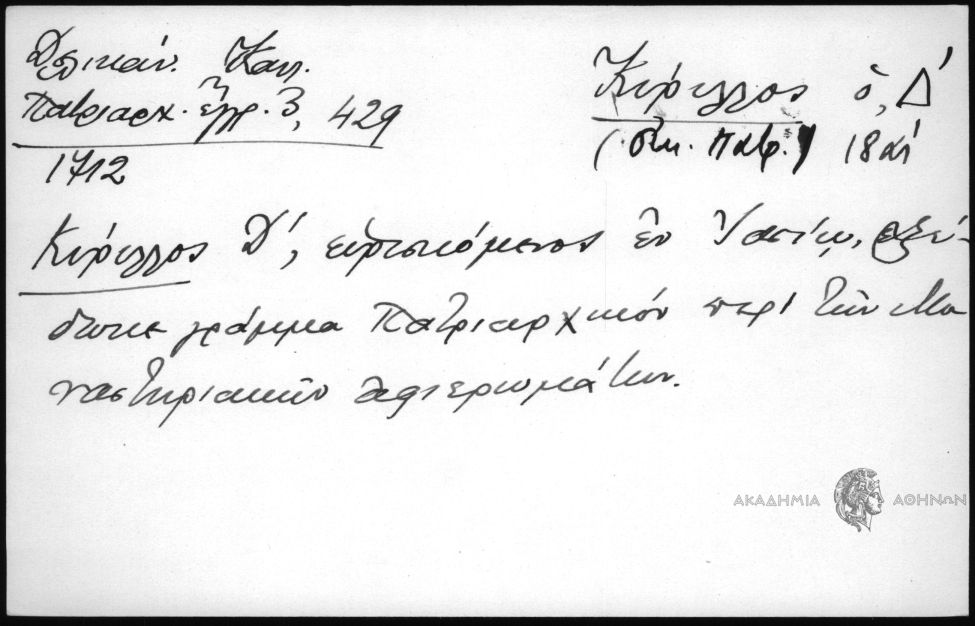 Δελικάν. Καλ.
Πατριαρχ. ἔγγρ. 3, 429
1712
Κύριλλος ὁ, Δ'
(Οἰκ. Πατρ.) 18 αἰ
Κύριλλος Δ', εὑρισκόμενος ἐν Ἰασίῳ, ἐξέ-
δωκε γράμμα Πατριαρχικόν περί τῶν Μο
ναστηριακῶν ἀφιερωμάτων.
ΑΚΑΔΗΜΙΑ ΑΘΗΝΩΝ